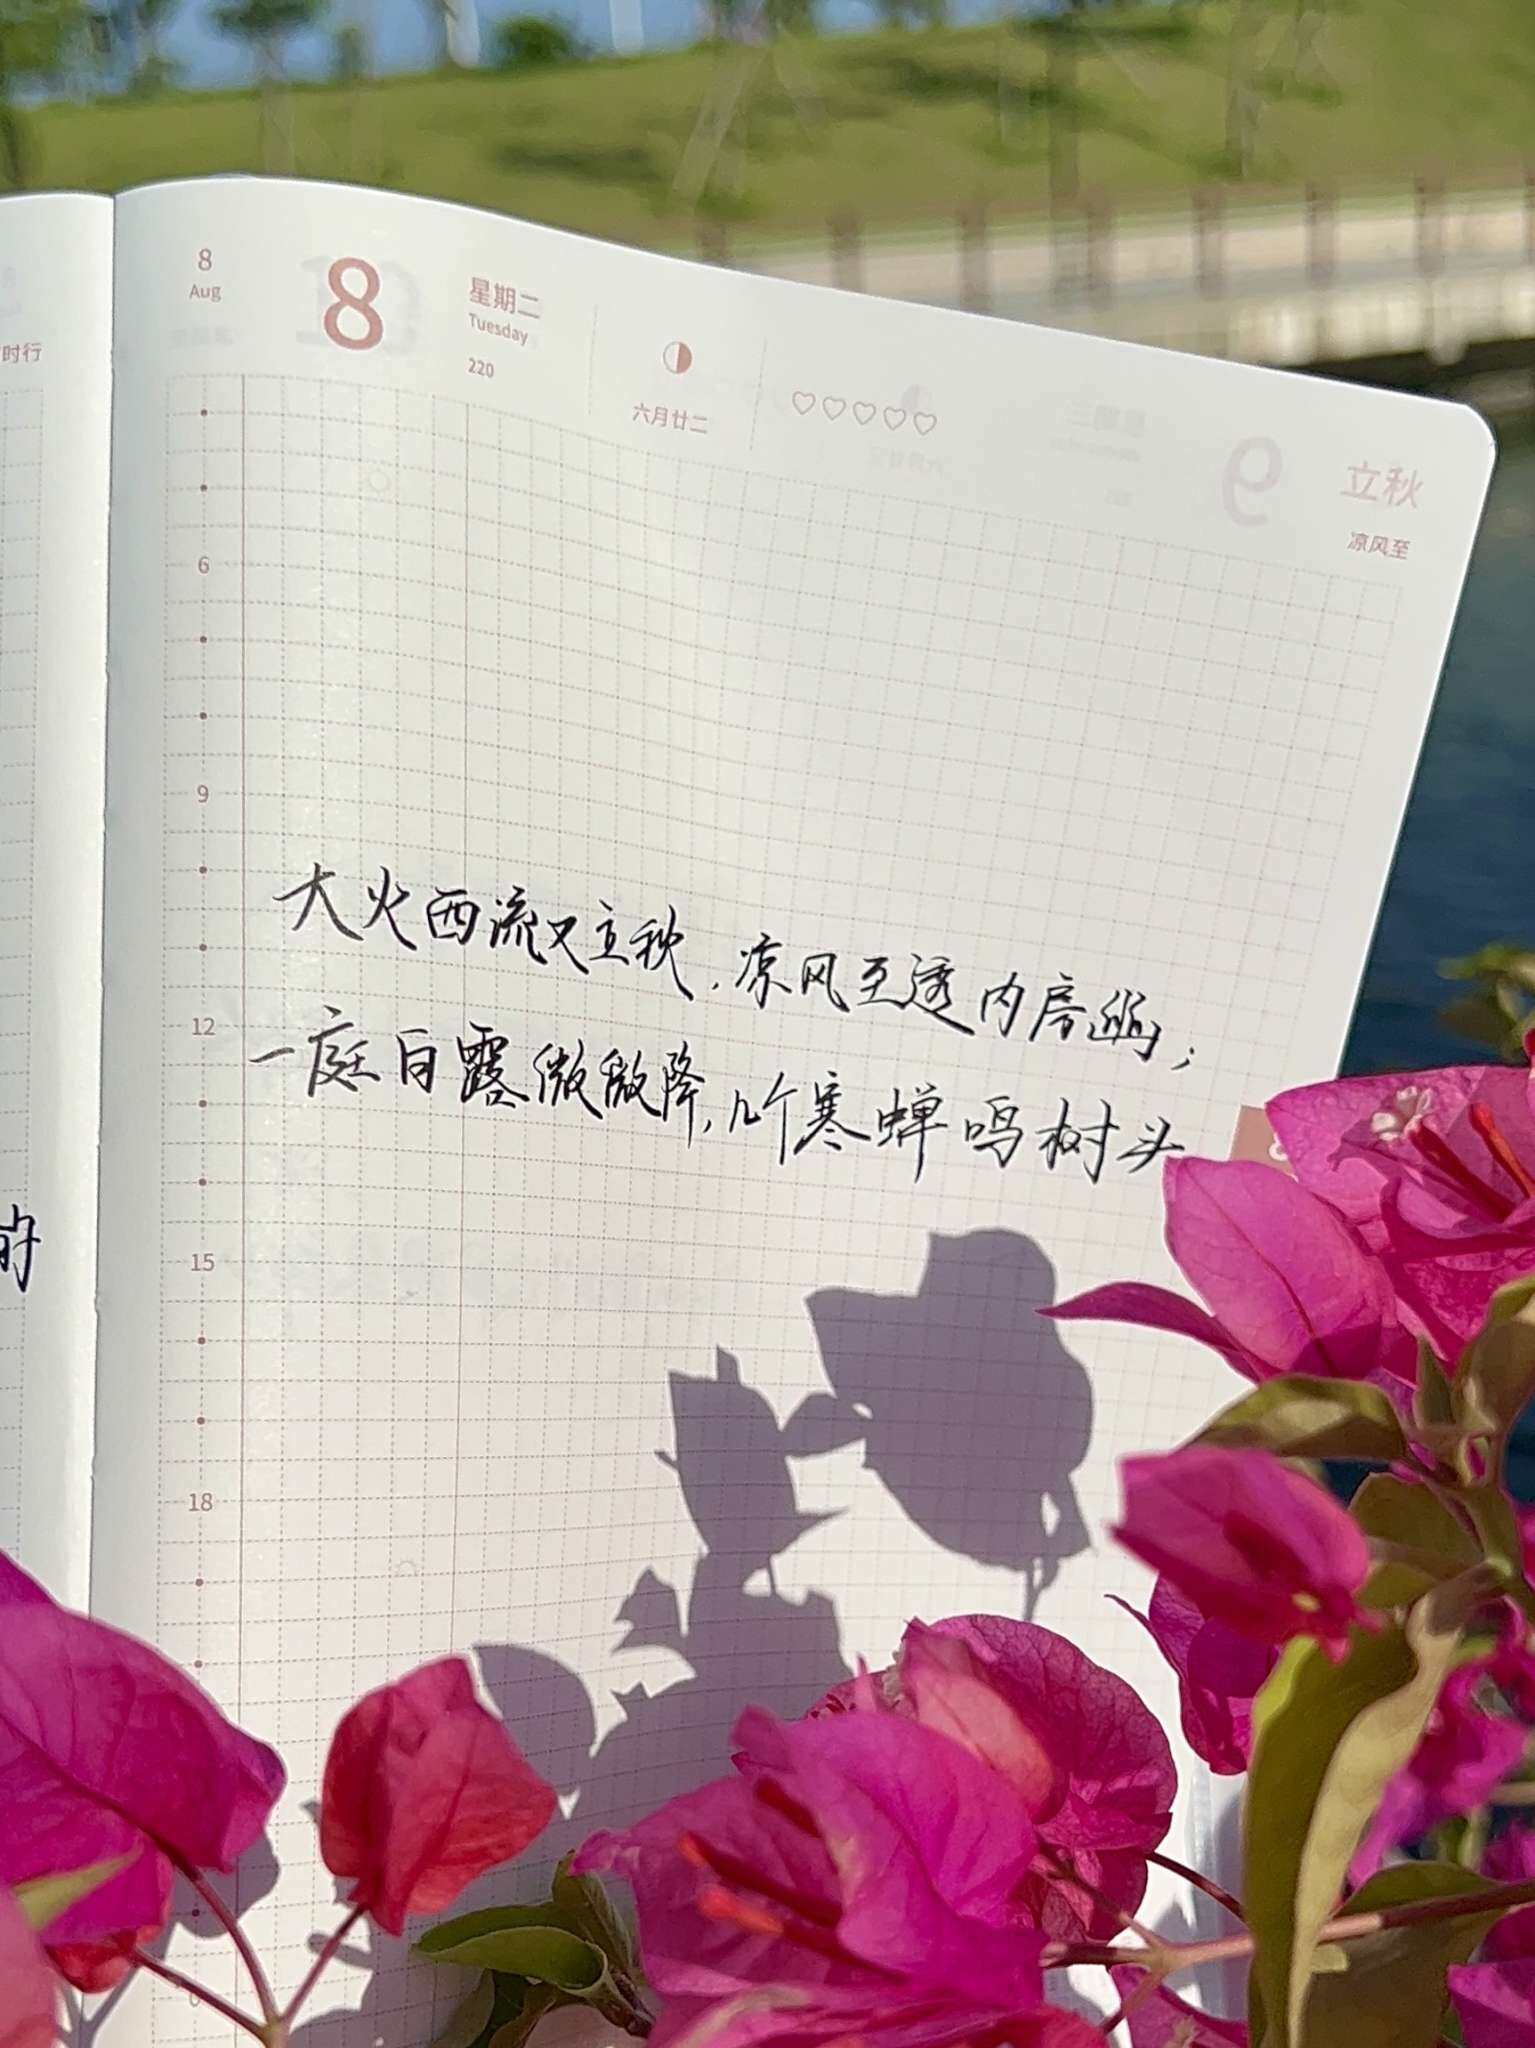 时行
8
Aug
8
星期二
Tuesday
220
六月廿二
立秋
凉风至
6
9
12
15
18
大火西流又立秋，凉风至透内房幽；
一庭白露微微降，几个寒蝉鸣树头
的